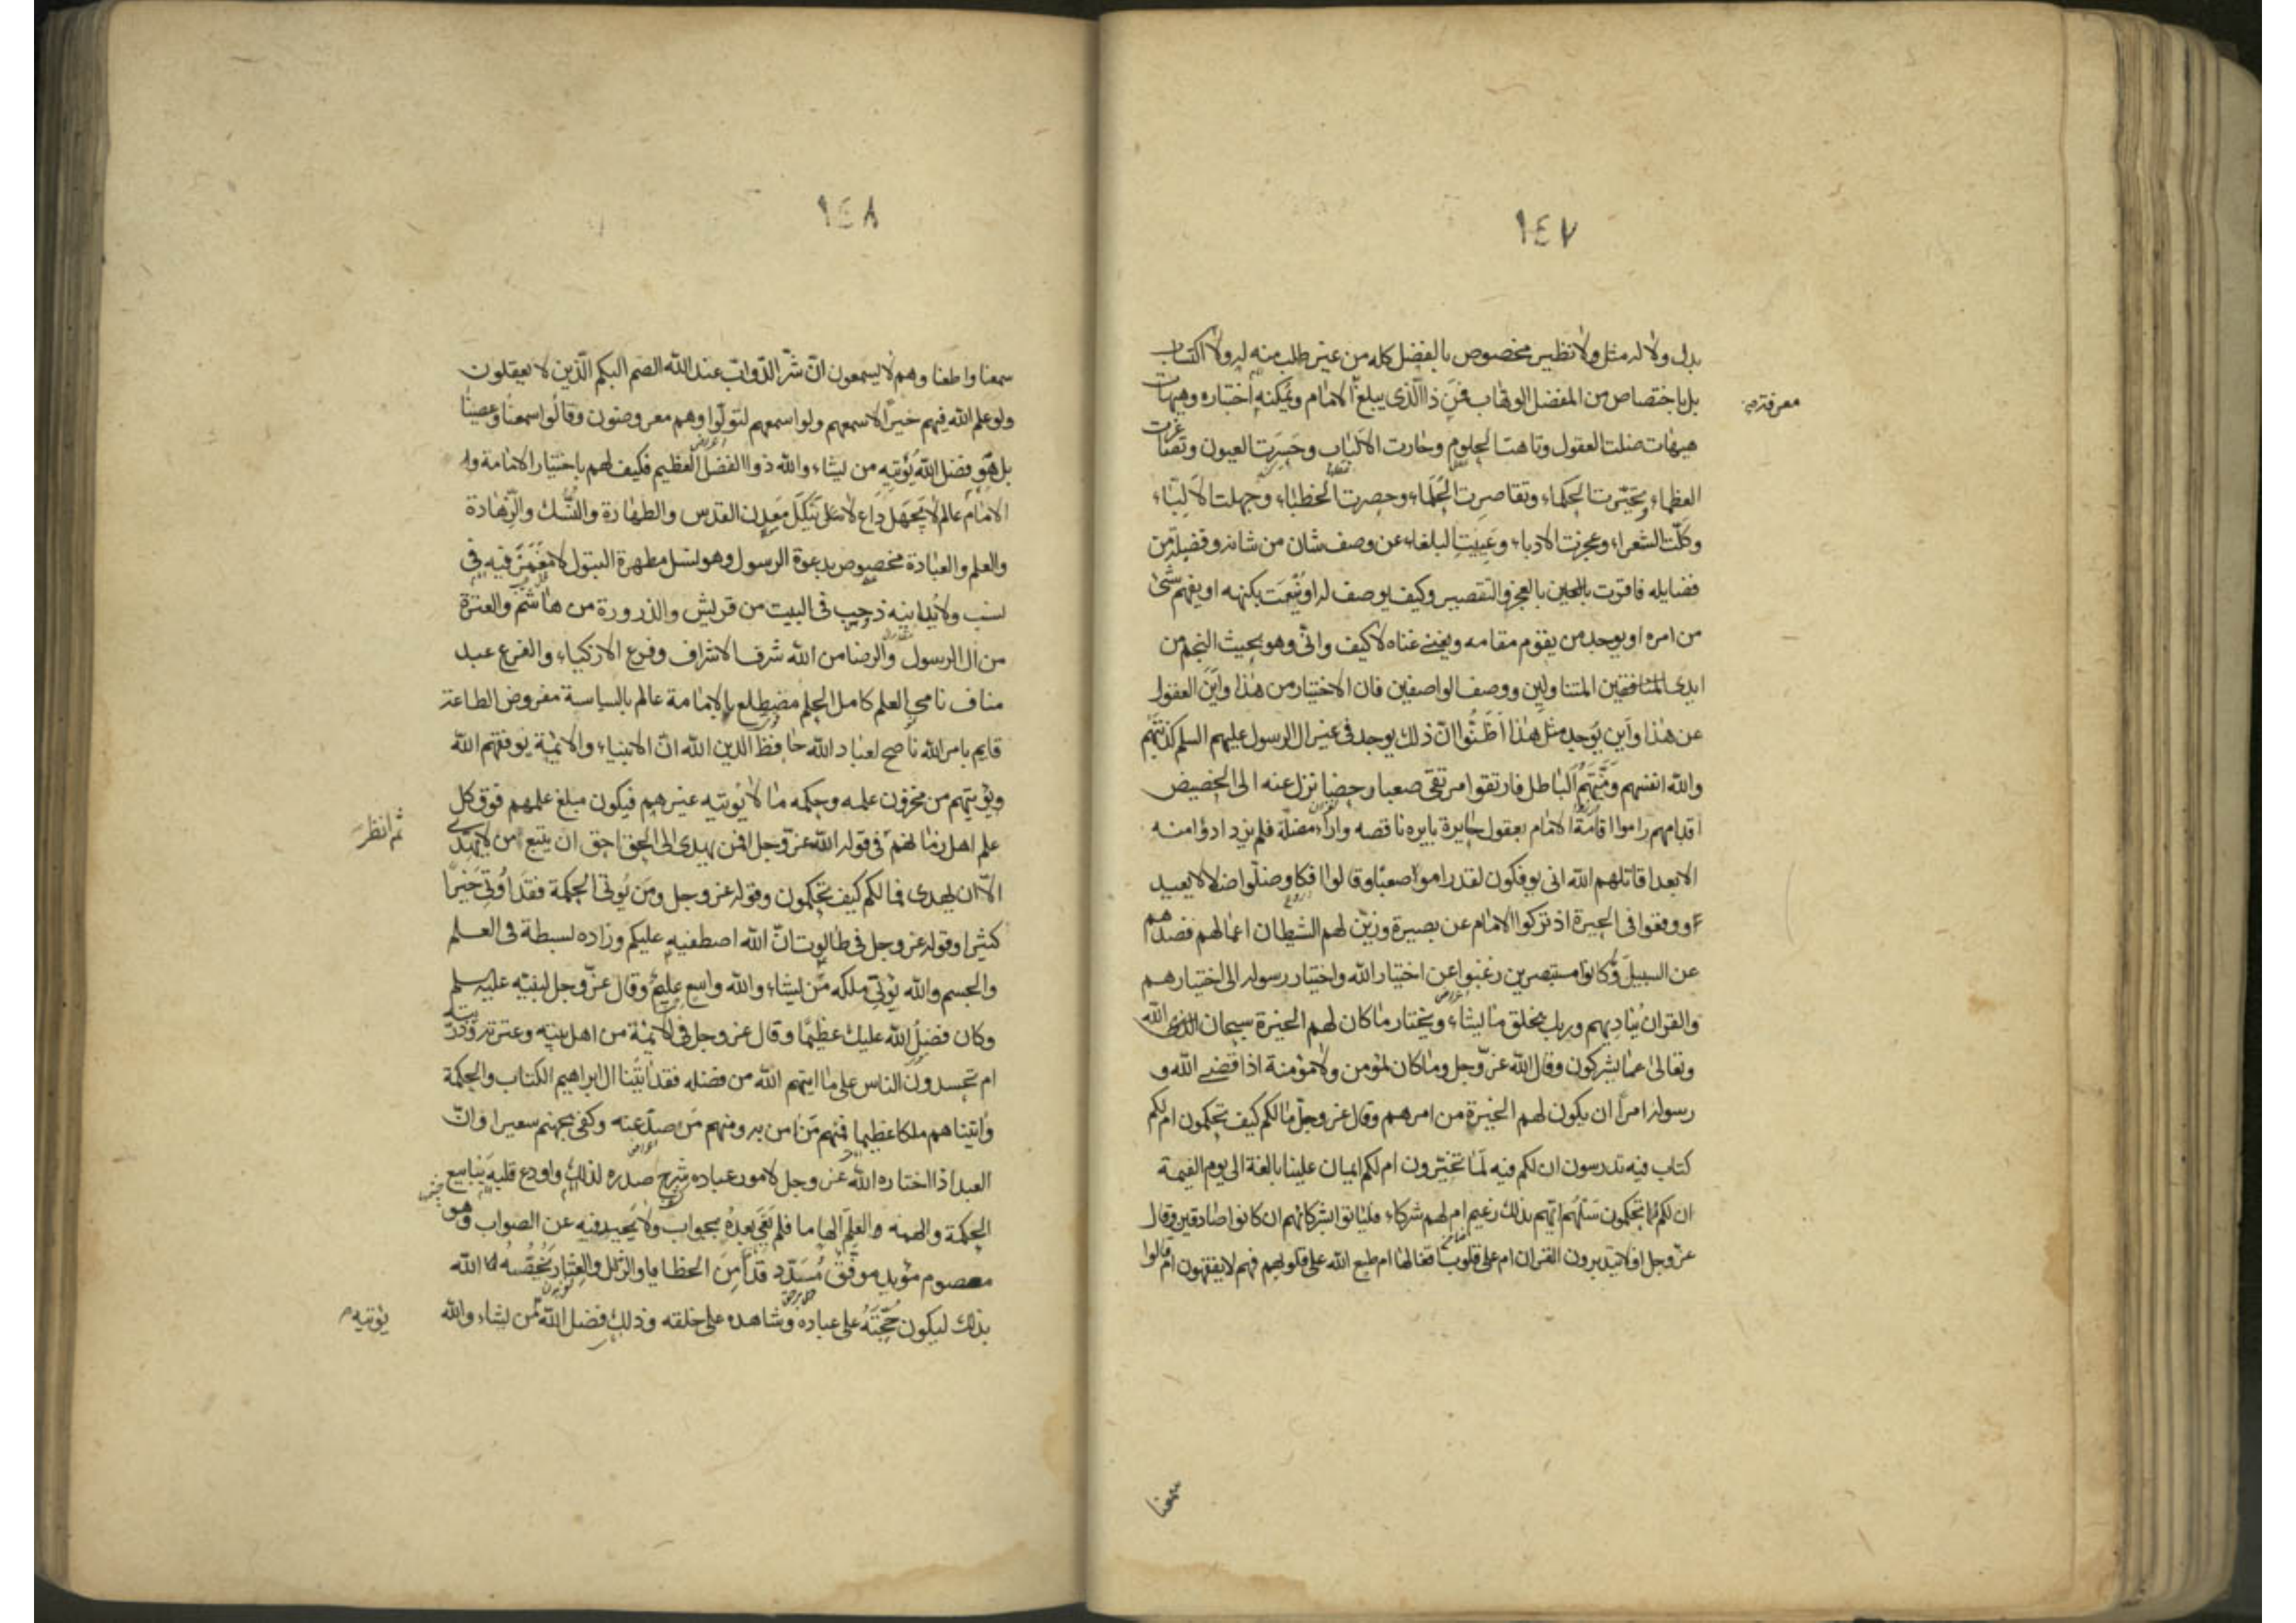 ١٤٧
بدل ولا له مثل ولا نظير مخصوص بالفضل كله من غير طلب منه له ولا اكتساب
بل باختصاص من المفضل الوهاب فمن ذا الذي يبلغ الامام ويمكنه اختياره وهيهات
معرفة
هيهات ضلت العقول وتاهت الحلوم وحارت الالباب وحسرت العيون وتصاغرت
العظماء وتحيرت الحكماء وتقاصرت الحلماء وحصرت الخطباء وجهلت الالباء
وكلت الشعراء وعجزت الادباء وعييت البلغاء عن وصف شان من شانه وفضيلة من
فضايله فاقرت بالعجز والتقصير وكيف يوصف له او ينعت بكنهه او يفهم شئ
من امره او يوجد من يقوم مقامه ويغني غناه لا كيف وانى وهو بحيث النجم من
ايدى المتناولين ووصف الواصفين فان الاختيار من هذا واين العقول
عن هذا واين يوجد مثل هذا اظنوا ان ذلك يوجد فى غير ال الرسول عليهم السلم كذبتهم
والله انفسهم ومنتهم الباطل فارتقوا مرتقى صعبا دحضا تزل عنه الى الحضيض
اقدامهم راموا اقامة الامام بعقول حايرة بايرة ناقصه واراء مضلة فلم يزدادوا منه
الا بعدا قاتلهم الله انى يوفكون لقد راموا صعبا وقالوا افكا وضلوا ضلالا بعيد
ا ووقعوا فى الحيرة اذ تركوا الامام عن بصيرة وزين لهم الشيطان اعمالهم فصدهم
عن السبيل وكانوا مستبصرين رغبوا عن اختيار الله واختيار رسوله الى اختيارهم
والقران يناديهم وربك يخلق ما يشاء ويختار ما كان لهم الخيرة سبحان الله
وتعالى عما يشركون وقال الله عز وجل وما كان لمؤمن ولا مؤمنة اذا قضى الله و
رسوله امرا ان يكون لهم الخيرة من امرهم وقال عز وجل ما لكم كيف تحكمون ام لكم
كتاب فيه تدرسون ان لكم فيه لما تخيرون ام لكم ايمان علينا بالغة الى يوم القيمة
ان لكم لما تحكمون سلهم ايهم بذلك زعيم ام لهم شركاء فلياتوا بشركائهم ان كانوا صادقين وقال
عز وجل افلا يتدبرون القران ام على قلوب اقفالها ام طبع الله على قلوبهم فهم لا يفقهون ام قالوا
سمعنا
١٤٨
سمعنا واطعنا وهم لا يسمعون ان شر الدواب عند الله الصم البكم الذين لا يعقلون
ولو علم الله فيهم خيرا لاسمعهم ولو اسمعهم لتولوا وهم معرضون وقالوا سمعنا وعصينا
بل هو فضل الله يؤتيه من يشاء والله ذوا الفضل العظيم فكيف لهم باختيار الامامة و
الامام عالم لا يجهل داع لا ينكل معدن القدس والطهارة والنسك والزهادة
والعلم والعبادة مخصوص بدعوة الرسول وهو نسل مطهرة البتول لا مغمز فيه فى
نسب ولا يدانيه ذو حسب فى البيت من قريش والذرورة من هاشم والعترة
من ال الرسول والرضا من الله شرف الاشراف وفرع الازكياء والفرع عبد
مناف نامى العلم كامل الحلم مضطلع بالامامة عالم بالسياسة مفروض الطاعة
قايم بامر الله ناصح لعباد الله حافظ الدين الله ان الانبياء والائمة يوفقهم الله
ويؤتيهم من مخزون علمه وحكمه ما لا يؤتيه غيرهم فيكون مبلغ علمهم فوق كل
علم اهل زمانهم فى قوله الله عز وجل افمن يهدى الى الحق احق ان يتبع امن لا يهدى
ثم انظر
الا ان يهدى فما لكم كيف تحكمون وقوله عز وجل ومن يؤتى الحكمة فقد اوتى خيرا
كثيرا وقوله عز وجل فى طالوت ان الله اصطفيه عليكم وزاده بسطة فى العلم
والجسم والله يؤتى ملكه من يشاء والله واسع عليم وقال عز وجل لنبيه عليه سلم
وكان فضل الله عليك عظيما وقال عز وجل فى الائمة من اهل بيته وعترته وذريته
ام تحسدون الناس على ما اتيهم الله من فضله فقد اتينا ال ابراهيم الكتاب والحكمة
واتيناهم ملكا عظيما فمنهم من امن به ومنهم من صد عنه وكفى بجهنم سعيرا وان
العبد اذا اختاره الله عز وجل لامور عباده شرح صدره لذلك واودع قلبه ينابيع
الحكمة والهمه العلم الهاما فلم يعى بعده بجواب ولا يحيد فيه عن الصواب وهو
معصوم مؤيد موفق مسدد قد امن الخطايا والزلل والعثار يخصه الله
بذلك ليكون حجته على عباده وشاهده على خلقه وذلك فضل الله من يشاء والله
يؤتيه